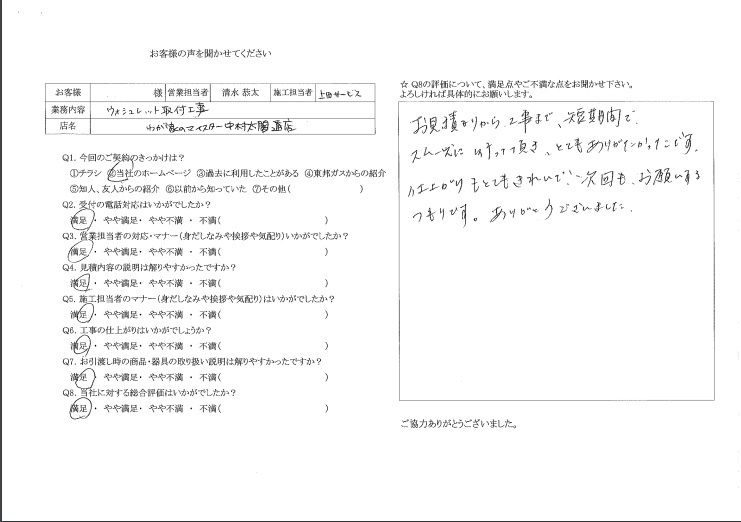 お客様の声を聞かせてください
お客様 様 営業担当者 清水 恭太 施工担当者 上田サービス
業務内容 ウォシュレット取付工事
店名 わが家のマイスター中村太閤通店
Q1. 今回のご契約のきっかけは?
①チラシ ②当社のホームページ ③過去に利用したことがある ④東邦ガスからの紹介
⑤知人、友人からの紹介 ⑥以前から知っていた ⑦その他( )
Q2. 受付の電話対応はいかがでしたか?
満足・ やや満足・ やや不満 ・ 不満( )
Q3. 営業担当者の対応・マナー(身だしなみや挨拶や気配り)いかがでしたか?
満足・ やや満足・ やや不満 ・ 不満( )
Q4. 見積内容の説明は解りやすかったですか?
満足・ やや満足・ やや不満 ・ 不満( )
Q5. 施工担当者のマナー(身だしなみや挨拶や気配り)はいかがでしたか?
満足・ やや満足・ やや不満 ・ 不満( )
Q6. 工事の仕上がりはいかがでしょうか?
満足・ やや満足・ やや不満 ・ 不満( )
Q7. お引渡し時の商品・器具の取り扱い説明は解りやすかったですか?
満足・ やや満足・ やや不満 ・ 不満( )
Q8. 当社に対する総合評価はいかがでしたか?
満足・ やや満足・ やや不満 ・ 不満( )
☆ Q8の評価について、満足点やご不満な点をお聞かせ下さい。
よろしければ具体的にお願いします。
お見積もりから工事まで、短期間で
スムーズに行って頂き、とてもありがたかったです。
仕上がりもとてもきれいで、次回も、お願いする
つもりです。ありがとうございました。
ご協力ありがとうございました。